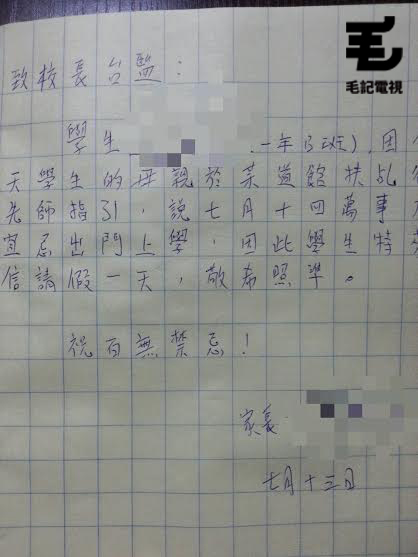 毛
毛記電視
致校長台監：
學生 一年B班），因
天學生的母親於某道館扶乩
先師指引，說七月十四萬事
宜忌出門上學，因此學生特
信請假一天，敬希照準。
祝百無禁忌！
家長：
七月十三日